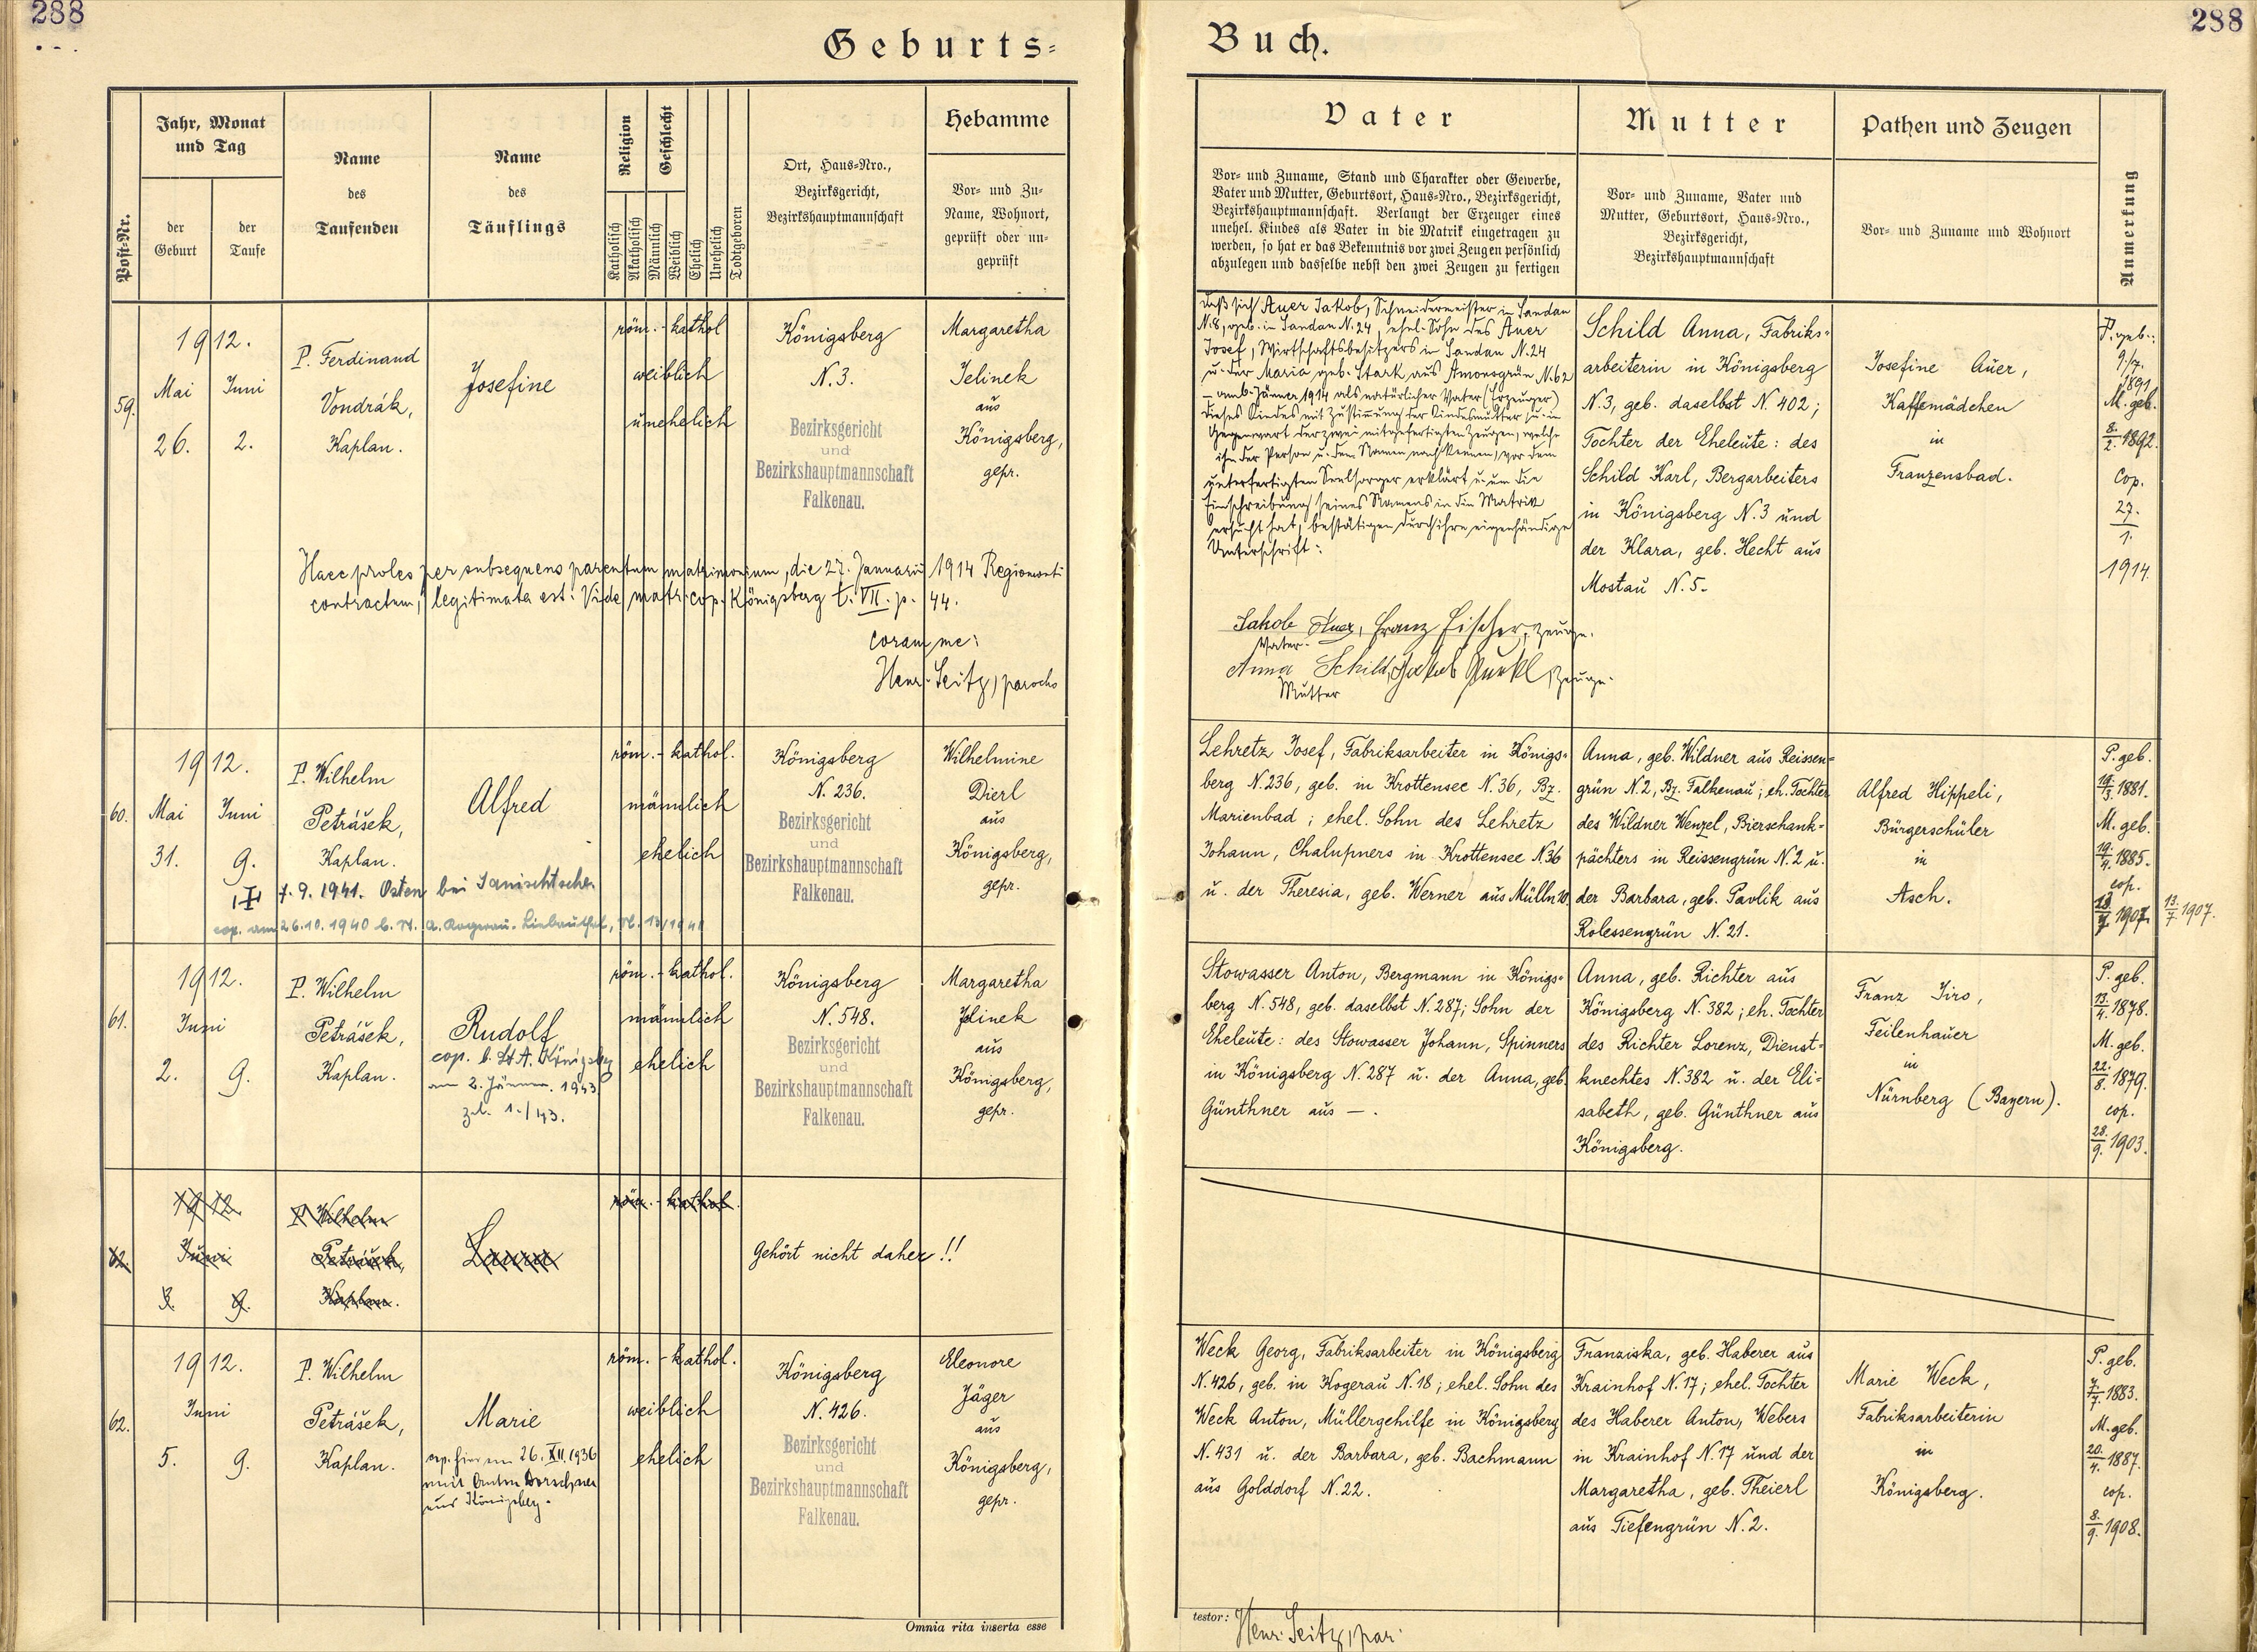 288
288
Geburts=
Buch.
Post-Nr.
Jahr, Monat
und Tag
der
Geburt
der
Taufe
Name
des
Taufenden
Name
des
Täuflings
Religion
Katholisch
Akatholisch
Geschlecht
Männlich
Weiblich
Ehelich
Unehelich
Todtgeboren
Ort, Haus=Nro.,
Bezirksgericht,
Bezirkshauptmannschaft
Hebamme
Vor= und Zu=
Name, Wohnort,
geprüft oder un=
geprüft
Vater
Vor= und Zuname, Stand und Charakter oder Gewerbe,
Vater und Mutter, Geburtsort, Haus=Nro., Bezirksgericht,
Bezirkshauptmannschaft. Verlangt der Erzeuger eines
unehel. Kindes als Vater in die Matrik eingetragen zu
werden, so hat er das Bekenntnis vor zwei Zeugen persönlich
abzulegen und dasselbe nebst den zwei Zeugen zu fertigen
Mutter
Vor= und Zuname, Vater und
Mutter, Geburtsort, Haus=Nro.,
Bezirksgericht,
Bezirkshauptmannschaft
Pathen und Zeugen
Vor= und Zuname und Wohnort
Anmerkung
59.
1912.
Mai
26.
Juni
2.
P. Ferdinand
Vondrák,
Kaplan.
Josefine
röm.-kathol
weiblich
unehelich
Königsberg
N. 3.
Bezirksgericht
und
Bezirkshauptmannschaft
Falkenau.
Margaretha
Jelinek
aus
Königsberg,
gepr.
Haec proles per subsequens parentum matrimonium, die 27. Januarii 1914 Regiomonti
contractum, legitimata est. Vide matr. cop. Königsberg t. VII. p. 44.
coram me:
Henr. Seitz, parocho
daß sich Auer Jakob, Schneidermeister in Sandau
N. 8, geb. in Sandau N. 24, ehel. Sohn des Auer
Josef, Wirtschaftsbesitzers in Sandau N. 24
u. der Maria geb. Stark aus Amonsgrün N. 62
– am 6. Jänner 1914 als natürlicher Vater (Erzeuger)
dieses Kindes mit Zustimmung der Kindesmutter u. in
Gegenwart der zwei mitgefertigten Zeugen, welche
ihn der Person u. dem Namen nach kennen, vor dem
unterfertigten Seelsorger erklärt u. um die
Einschreibung seines Namens in die Matrik
ersucht hat, bestätigen durch ihre eigenhändige
Unterschrift:
Jakob Auer, Franz Fischer, Zeuge.
Vater.
Anna Schild, Jakob Zeuge.
Mutter
Schild Anna, Fabriks=
arbeiterin in Königsberg
N. 3, geb. daselbst N. 402;
Tochter der Eheleute: des
Schild Karl, Bergarbeiters
in Königsberg N. 3 und
der Klara, geb. Hecht aus
Mostau N. 5.
Josefine Auer,
Kaffemädchen
in
Franzensbad.
P. geb.:
9./7.
1891
M. geb.
8./2. 1892.
cop.
27.
1.
1914.
60.
1912.
Mai
31.
Juni
9.
P. Wilhelm
Petrášek,
Kaplan.
Alfred
röm.-kathol.
männlich
ehelich
Königsberg
N. 236.
Bezirksgericht
und
Bezirkshauptmannschaft
Falkenau.
Wilhelmine
Dierl
aus
Königsberg,
gepr.
7. 9. 1941. Osten bei Janischtsche
cop. am 26.10.1940 b. St. A. Kogerau-Liebauthal, N. 13/1940
Lehretz Josef, Fabriksarbeiter in Königs=
berg N. 236, geb. in Krottensee N. 36, Bz.
Marienbad; ehel. Sohn des Lehretz
Johann, Chalupners in Krottensee N. 36
u. der Theresia, geb. Werner aus Mülln 10.
Anna, geb. Wildner aus Reissen=
grün N. 2, Bz. Falkenau; eh. Tochter
des Wildner Wenzel, Bierschank=
pächters in Reissengrün N. 2 u.
der Barbara, geb. Pavlik aus
Rolessengrün N. 21.
Alfred Hippeli,
Bürgerschüler
in
Asch.
P. geb.
19./3. 1881.
M. geb.
19./4. 1885.
cop.
13./7. 1907.
13./7. 1907.
61.
1912.
Juni
2.
9.
P. Wilhelm
Petrášek,
Kaplan.
Rudolf
cop. b. St. A. Königsbg
am 2. Jänner 1943
zl. 1./43.
röm.-kathol.
männlich
ehelich
Königsberg
N. 548.
Bezirksgericht
und
Bezirkshauptmannschaft
Falkenau.
Margaretha
Jelinek
aus
Königsberg,
gepr.
Stowasser Anton, Bergmann in Königs=
berg N. 548, geb. daselbst N. 287; Sohn der
Eheleute: des Stowasser Johann, Spinners
in Königsberg N. 287 u. der Anna, geb.
Günthner aus –.
Anna, geb. Richter aus
Königsberg N. 382; eh. Tochter
des Richter Lorenz, Dienst=
knechtes N. 382 u. der Eli=
sabeth, geb. Günthner aus
Königsberg.
Franz Jiro,
Feilenhauer
in
Nürnberg (Bayern).
P. geb.
13./4. 1878.
M. geb.
22./8. 1879.
cop.
28./9. 1903.
62.
1912
Juni
3.
9.
P. Wilhelm
Petrášek,
Kaplan.
Laura
röm.-kathol.
Gehört nicht daher!!
62.
1912.
Juni
5.
9.
P. Wilhelm
Petrášek,
Kaplan.
Marie
cop. hier am 26. XII. 1936
mit Anton Dorschner
aus Königsberg.
röm.-kathol.
weiblich
ehelich
Königsberg
N. 426.
Bezirksgericht
und
Bezirkshauptmannschaft
Falkenau.
Eleonore
Jäger
aus
Königsberg,
gepr.
Weck Georg, Fabriksarbeiter in Königsberg
N. 426, geb. in Kogerau N. 18; ehel. Sohn des
Weck Anton, Müllergehilfe in Königsberg
N. 431 u. der Barbara, geb. Bachmann
aus Golddorf N. 22.
Franziska, geb. Haberer aus
Krainhof N. 17; ehel. Tochter
des Haberer Anton, Webers
in Krainhof N. 17 und der
Margaretha, geb. Theierl
aus Tiefengrün N. 2.
Marie Weck,
Fabriksarbeiterin
in
Königsberg.
P. geb.
7./7. 1883.
M. geb.
20./4. 1887.
cop.
8./9. 1908.
Omnia rita inserta esse
testor: Henr. Seitz, par.